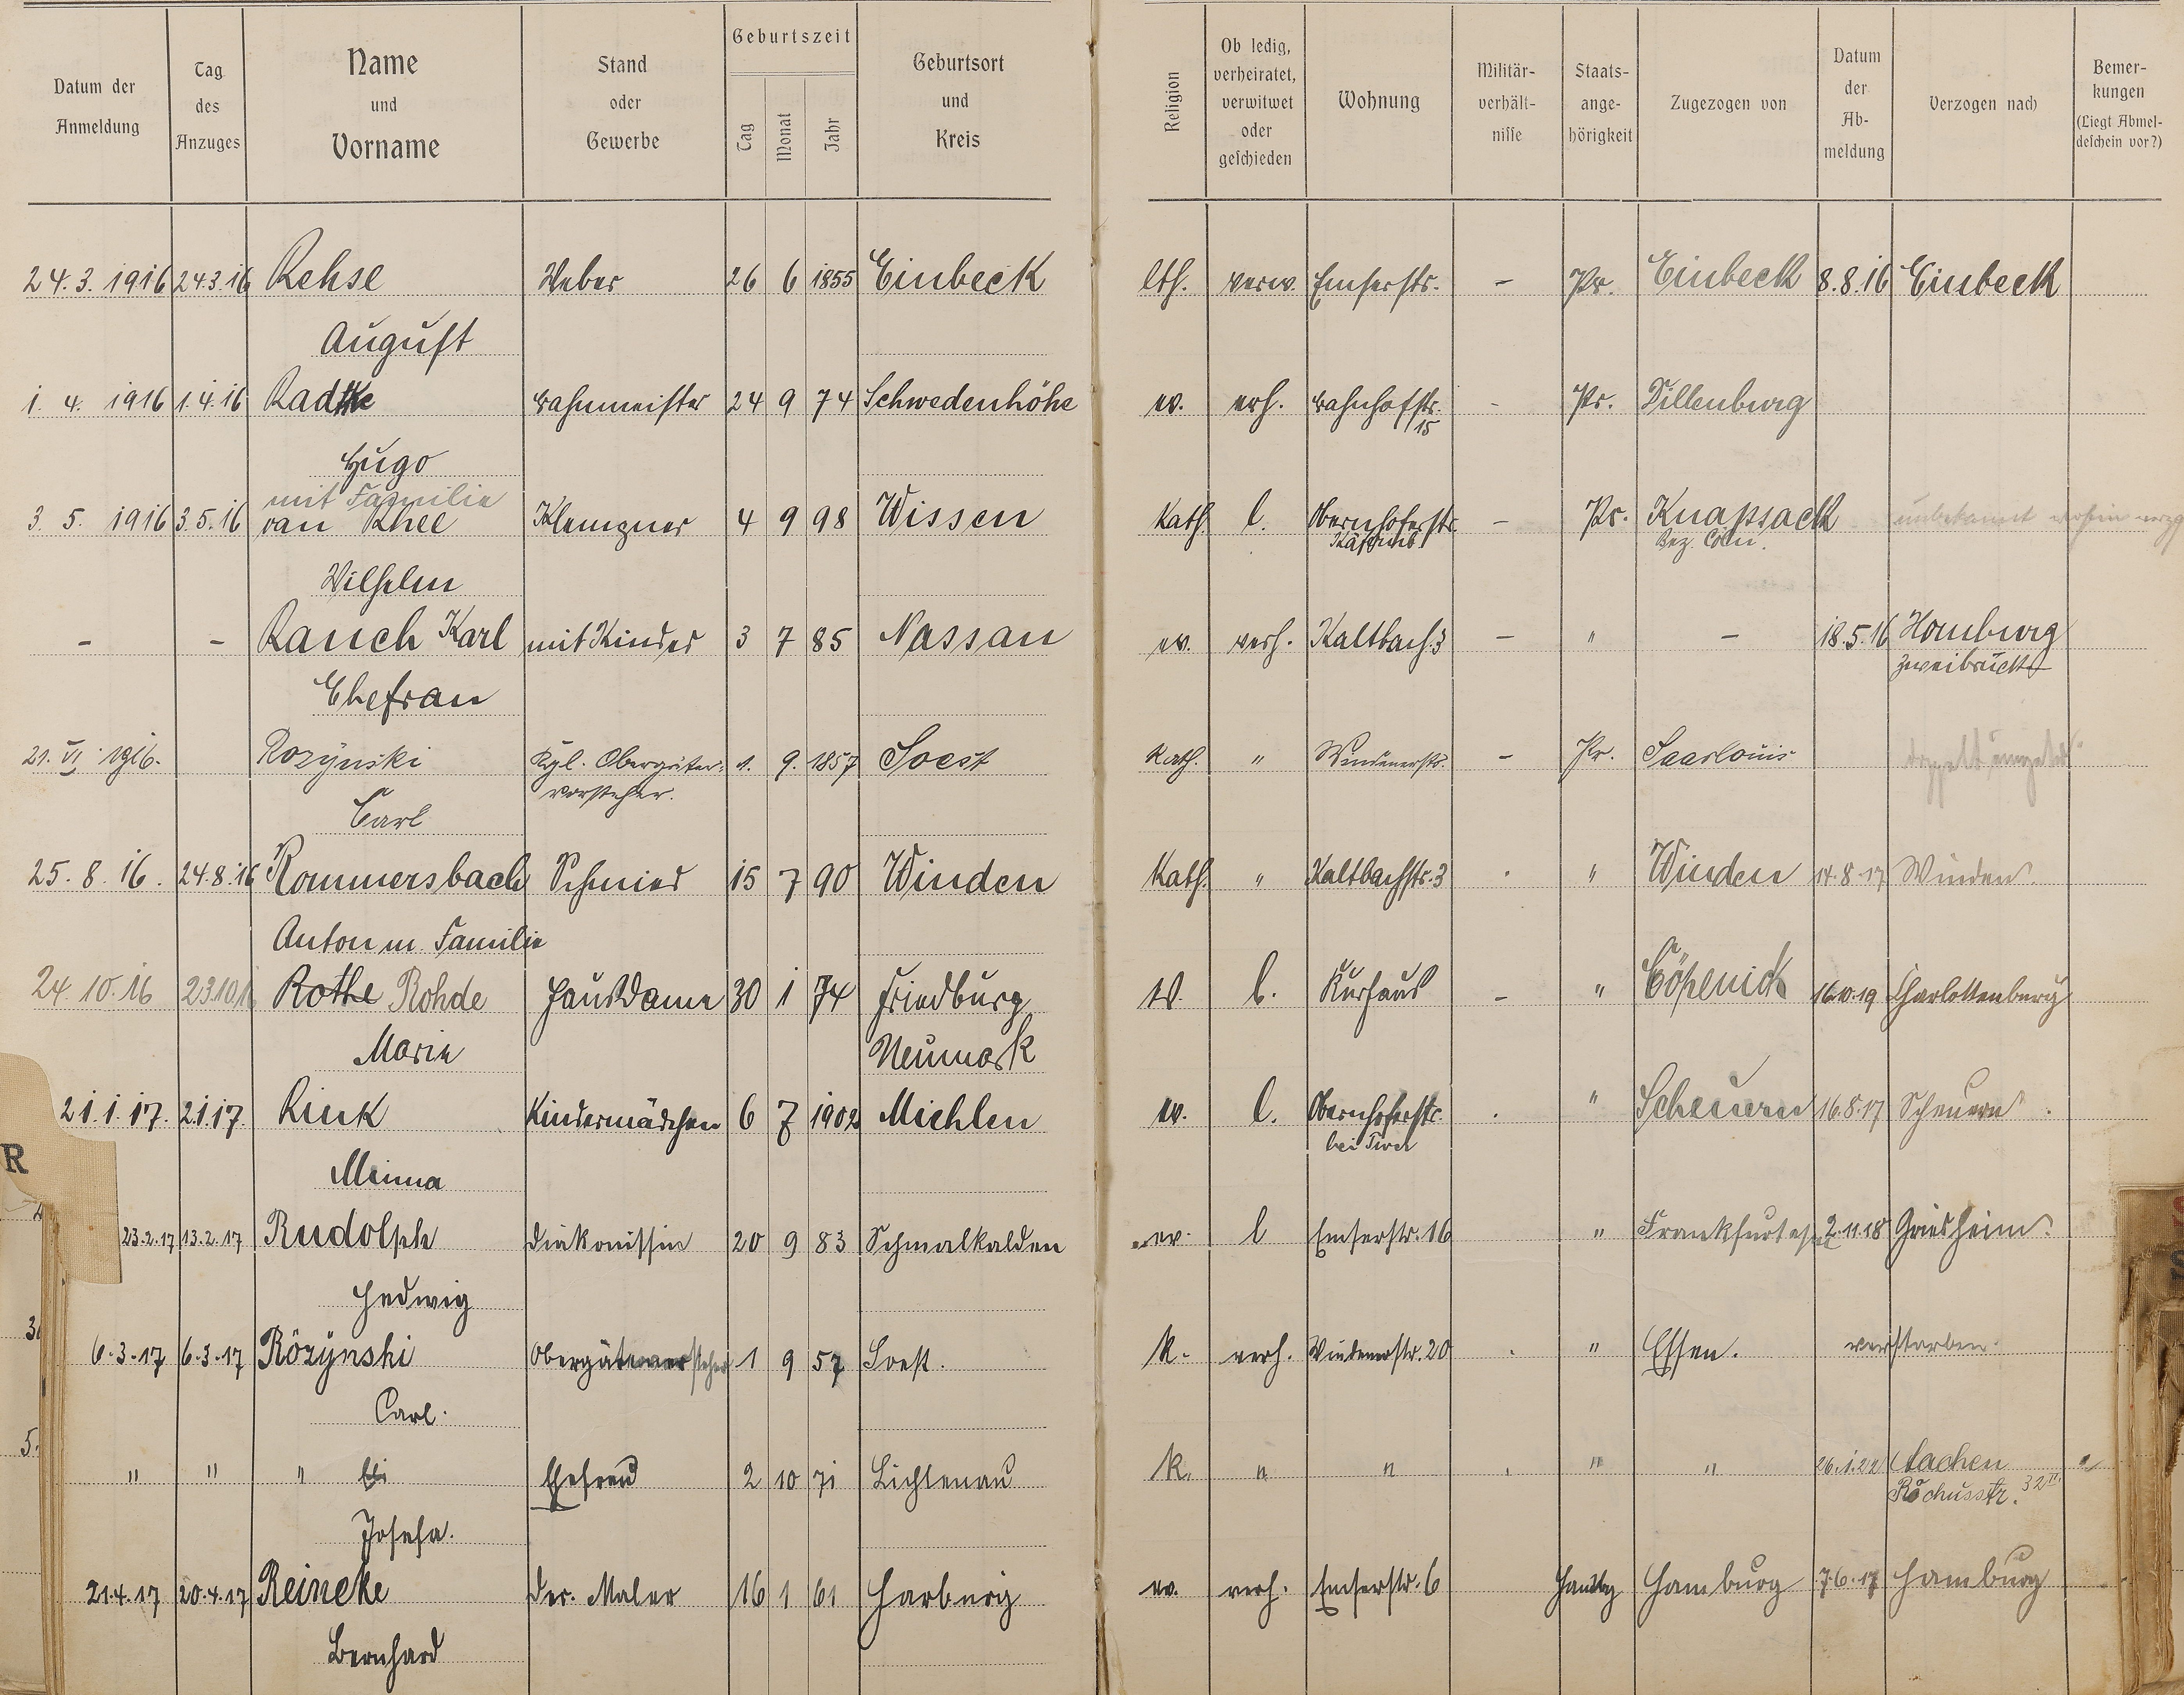 Datum der Anmeldung | Tag des Anzuges | Name und Vorname | Stand oder Gewerbe | Geburtszeit Tag Monat Jahr | Geburtsort und Kreis | Religion | Ob ledig, verheiratet, verwitwet oder geschieden | Wohnung | Militär-verhält-nisse | Staats-ange-hörigkeit | Zugezogen von | Datum der Ab-meldung | Verzogen nach | Bemer-kungen (Liegt Abmel-deschein vor?)
24.3.1916 24.3.16 Rehse Weber 26 6 1855 Einbeck lth. verw. Emserstr. - Pr. Einbeck 8.8.16 Einbeck
August
1. 4. 1916 1.4.16 Radtke Bahnmeister 24 9 74 Schwedenhöhe ev. verh. Bahnhofstr. - Pr. Dillenburg
15
Hugo
mit Familie
3. 5. 1916 3.5.16 van Rhee Klempner 4 9 98 Wissen Kath. l. Obernhoferstr. - Pr. Knapsack unbekannt wohin verzg
Bez. Cöln.
Wilhelm
- - Rauch Karl mit Kinder 3 7 85 Nassau ev. verh. Kaltbach 3 - " - 18.5.16 Homburg
Zweibrück
Ehefrau
21. VI 1916. Rozÿnski Kgl. Obergüter- 1. 9. 1857 Soest Kath. " Windenerstr. - Pr. Saarlouis doppelt
vorsteher.
Carl
25. 8. 16. 24.8.16 Rommersbach Schmied 15 7 90 Winden Kath. " Kaltbachstr. 3 . " Winden 14.8.17 Winden.
Anton m. Familie
24.10.16 23.10.16 Rothe Rohde Hausdame 30 1 74 Friedburg ev. l. Kurhaus - " Cöpenick 16.10.19 Charlottenburg
Marie Neumark
21.1.17. 2.1.17. Rink Kindermädchen 6 7 1902 Miehlen ev. l. Obernhoferstr. . " Scheuern 16.8.17 Scheuern.
bei
Minna
23.2.17 13.2.17 Rudolph Diakonissin 20 9 83 Schmalkalden ev. l Emserstr. 16 " Frankfurt 2.11.18 Griesheim.
Hedwig
6.3.17 6.3.17 Rözÿnski Obergütervorsteher 1 9 57 Soest. K. verh. Windenerstr. 20 . " Essen. verstorben.
Carl.
" " " Ehefrau 2 10 71 Lichtenau K. " " . " " 26.1.22 Aachen
Rochusstr. 32 II.
Josefa.
21.4.17 20.4.17 Reineke Der. Maler 16 1 61 Harburg ev. verh. Emserstr. 6 Hambg Hamburg 7.6.17 Hamburg
Bernhard
R